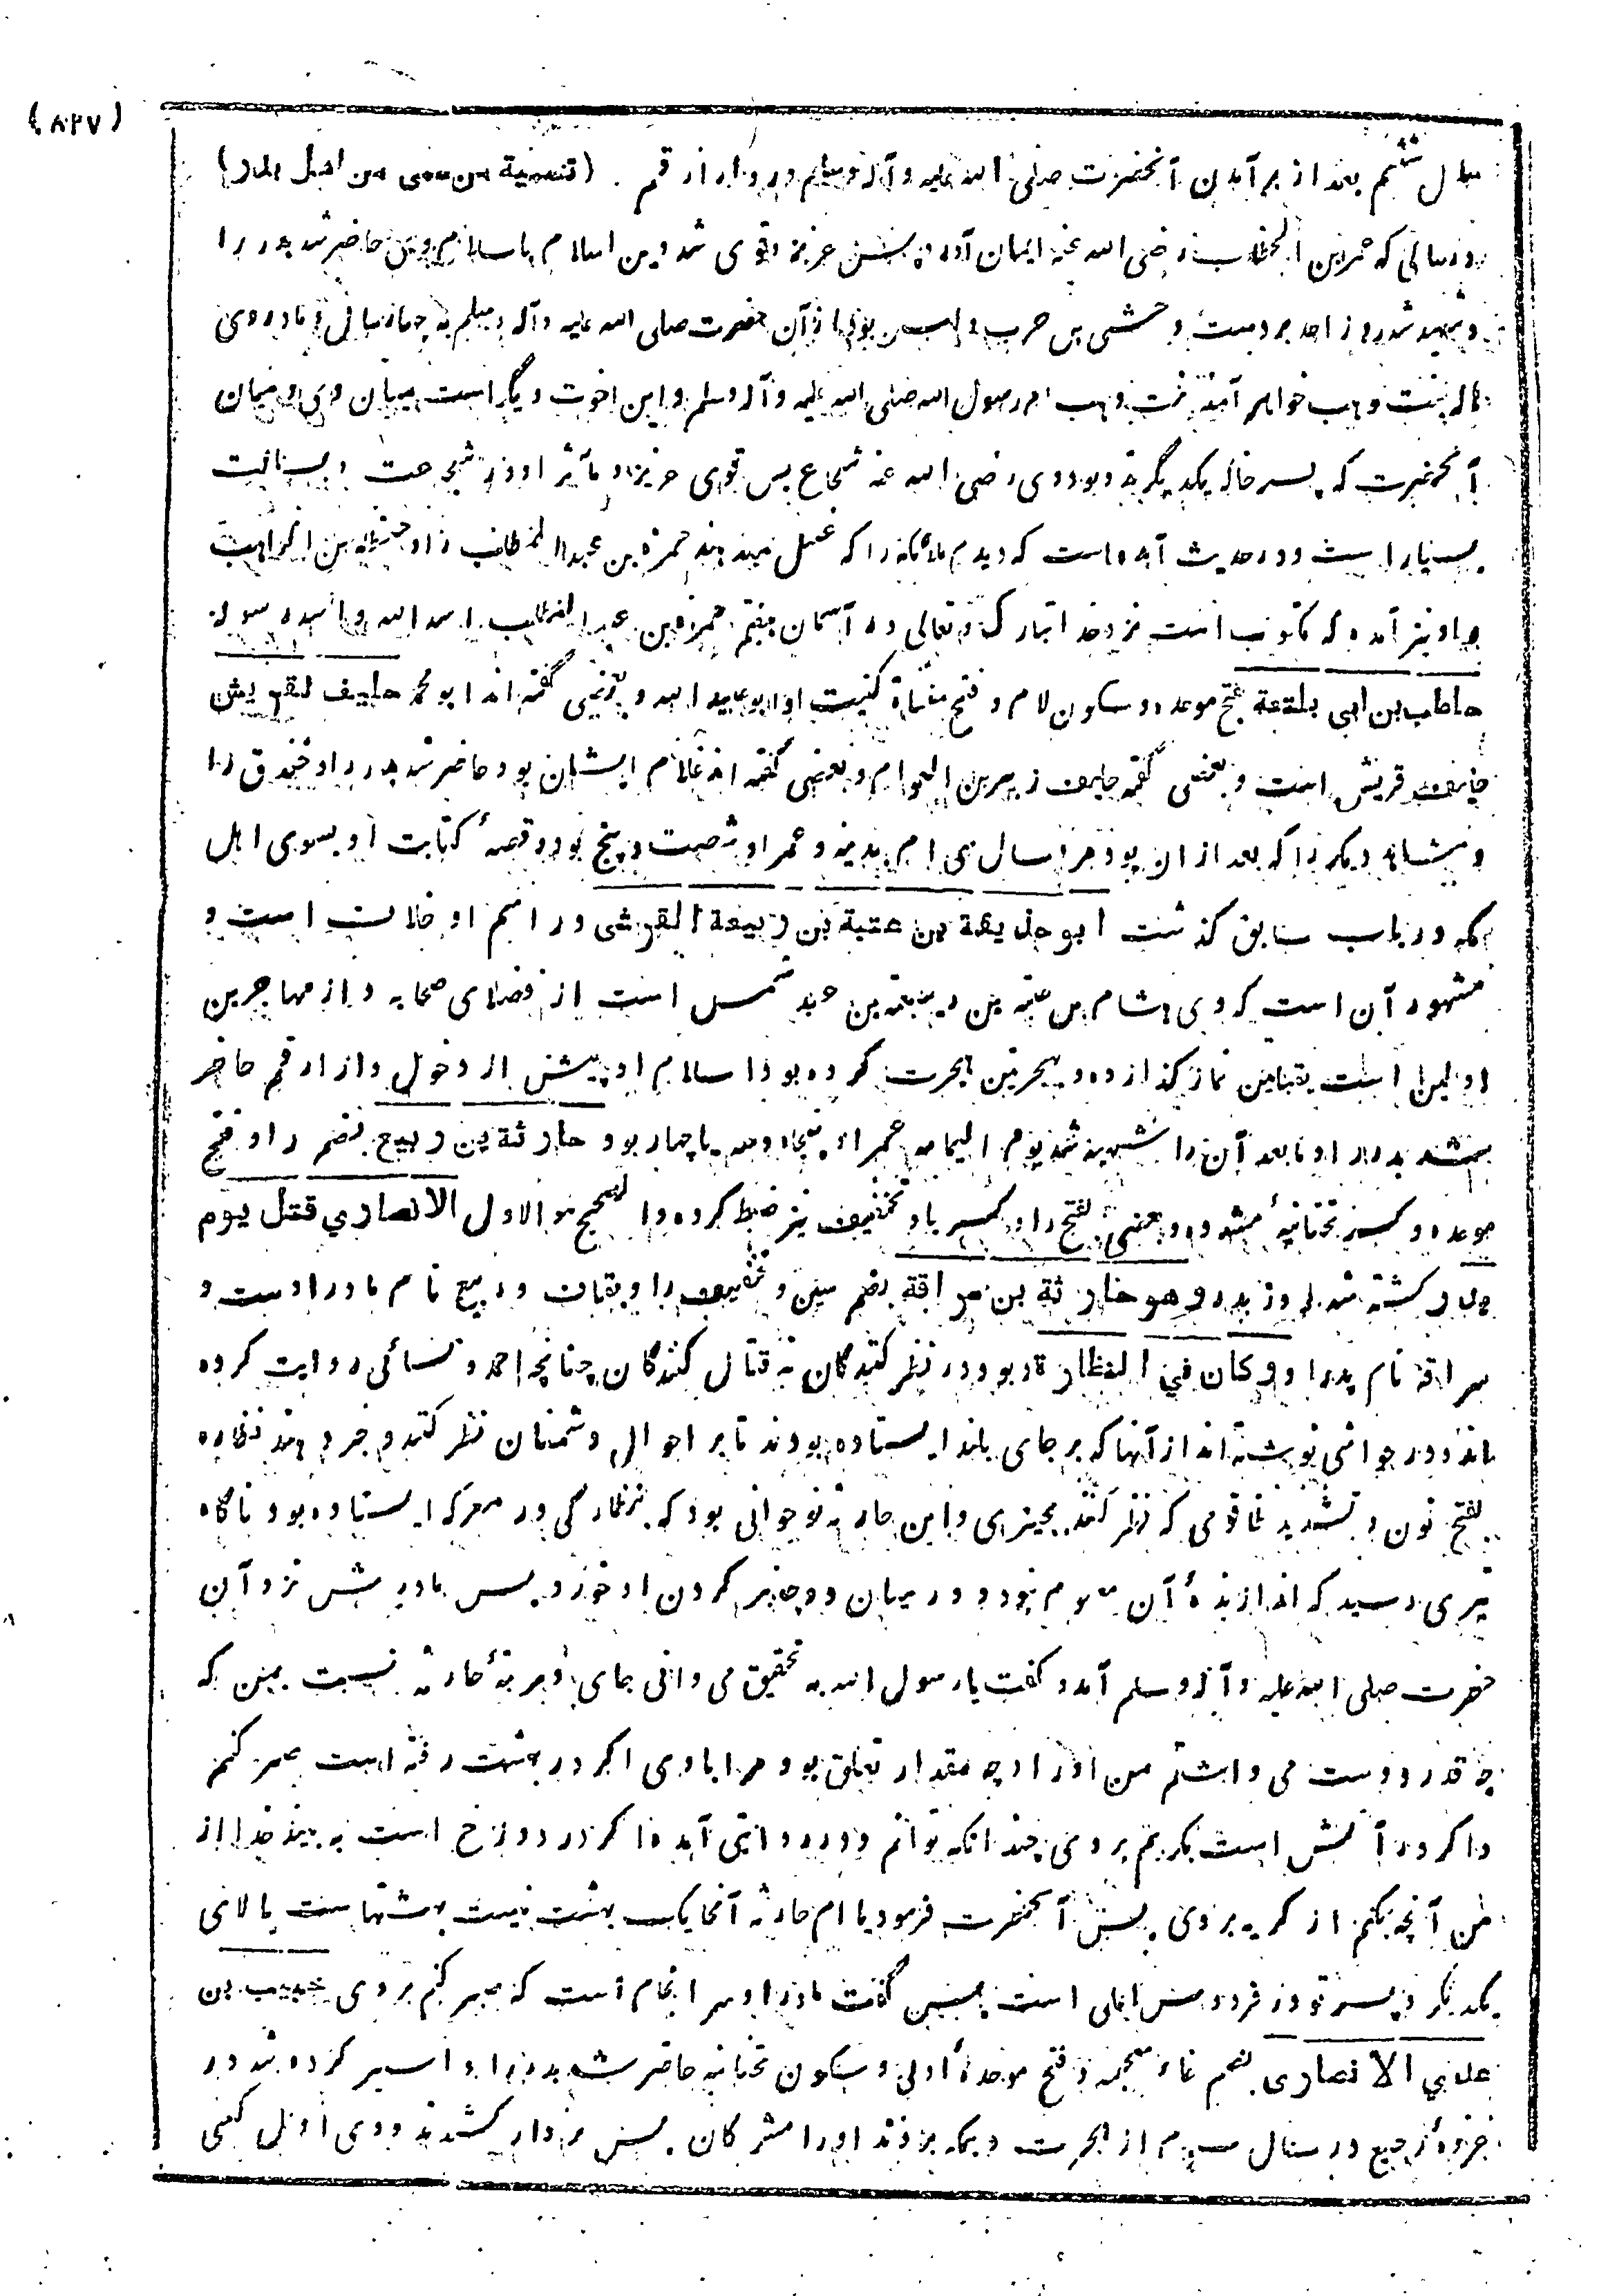 (۸۲۷)
سال ششم بعد از برآمدن آنحضرت صلی الله علیه و آله وسلم در دار ارقم (تسمية من سمى من اهل بدر)
در سالی که عمر بن الخطاب رضی الله عنه ایمان آورد پس عزیز و قوی شد دین اسلام باسلام وی حاضر شد بدر را
و شهید شد روز احد بر دست وحشی بن حرب و بود از آن حضرت صلی الله علیه وآله وسلم به چهار سال و مادر وی
هاله بنت وهب خواهر آمنه بنت وهب ام رسول الله صلی الله علیه وآله وسلم و این اخوت دیگر است میان وی و میان
آنحضرت که پسر خاله یکدیگرند و بود وی رضی الله عنه شجاع بس قوی عزیز و مآثر او در شجاعت و بسالت
بسیار است و در حدیث آمده است که دیدم ملائکه را که غسل میدهند حمزه بن عبد المطلب را و حنظله بن الراهب
را و نیز آمده که مکتوب است نزد خدا تبارک و تعالی در آسمان هفتم حمزه بن عبد المطلب اسد الله و اسد رسوله
حاطب بن ابي بلتعة بفتح موحده و سکون لام و فتح مثناة کنیت او ابو عبد الله و بعضی گفته اند ابو محمد حليف لقريش
حلیف قریش است و بعضی گفته حلیف زبیر بن العوام و بعضی گفته اند غلام ایشان بود حاضر شد بدر را و خندق را
و مشاهد دیگر را که بعد از ان بود مرد سال سی ام بمدینه و عمر او شصت و پنج بود و قصهٔ کتابت او بسوی اهل
مکه در باب سابق گذشت ابو حذيفة بن عتبة بن ربيعة القرشي و در اسم او خلاف است و
مشهور آن است که وی هشام بن عتبه بن ربیعه بن عبد شمس است از فضلای صحابه و از مهاجرین
اولین است بقبلتین نماز گذارده و بهجرتین هجرت کرده بود اسلام او پیش از دخول دار ارقم حاضر
شد بدر را و ما بعد آن را شهید شد یوم الیمامه عمر او پنجاه و سه یا چهار بود حارثة بن ربيع بضم را و فتح
موحده و کسر تحتانیهٔ مشدده و بعضی بفتح را و کسر با و تخفیف نیز ضبط کرده و الصحیح هو الاول الانصاري قتل يوم
بدر کشته شد روز بدر و هو حارثة بن سراقة بضم سین و تخفیف را و بقاف و ربیع نام مادر اوست و
سراقه نام پدر او و كان في النظارة و بود در نظر کنندگان نه قتال کنندگان چنانچه احمد و نسائی روایت کرده
اند و در حواشی نوشته اند از آنها که بر جای بلند ایستاده بودند تا بر احوال دشمنان نظر کنند و خبر دهند نظاره
بفتح نون و تشدید ظا قومی که نظر کنند بچیزی و این حارثه نوجوانی بود که بنظارگی در معرکه ایستاده بود ناگاه
تیری رسید که اندازندهٔ آن معلوم نبود و در میان دو چنبر گردن او خورد پس مادرش نزد آن
حضرت صلی الله علیه وآله وسلم آمد و گفت یا رسول الله به تحقیق می دانی جای و مرتبهٔ حارثه نسبت بمن که
چه قدر دوست می داشتم من او را و چه مقدار تعلق بود مرا با وی اگر در بهشت رفته است صبر کنم
و اگر در آتش است بگریم بر وی چندانکه توانم و در روایتی آمده اگر در دوزخ است به بیند خدا از
من آنچه بکنم از گریه بر وی پس آنحضرت فرمود یا ام حارثه آنجا یک بهشت نیست بهشتهاست بالای
یکدیگر و پسر تو در فردوس اعلی است پس گفت مادر او سرانجام است که صبر کنم بر وی خبيب بن
عدي الانصاري بضم خاء معجمه و فتح موحدهٔ اولی و سکون تحتانیه حاضر شد بدر را و اسیر کرده شد در
غزوهٔ رجیع در سال سیوم از هجرت و بمکه بردند او را مشرکان پس بر دار کشیدند و وی اول کسی